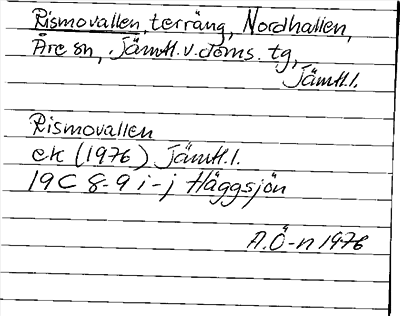 Rismovallen, terräng, Nordhallen,
Åre sn, Jämtl. v. doms. tg,
Jämtl.l.
Rismovallen
ek (1976) Jämtl.l.
19C 8-9 i-j Häggsjön
A.Ö-n 1976